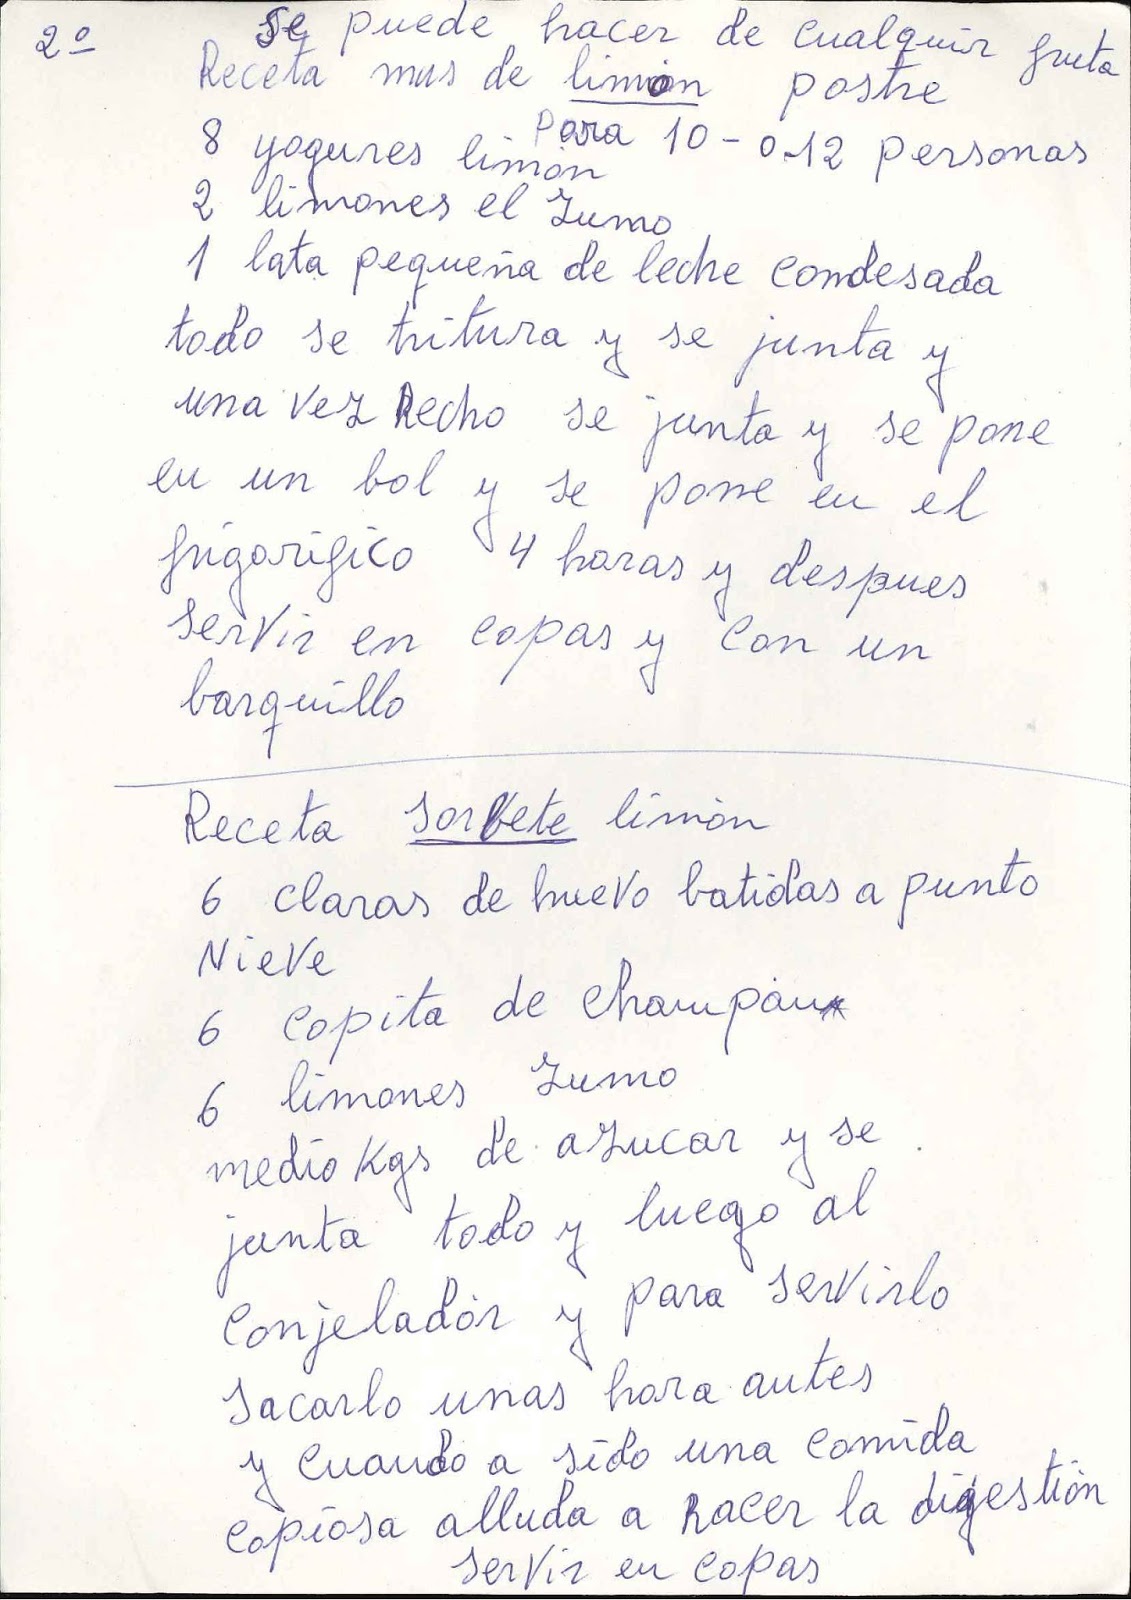 2º
Se puede hacer de cualquir fruta
Receta mus de limón postre
Para 10-o-12 personas
8 yogures limón
2 limones el zumo
1 lata pequeña de leche condesada
todo se tritura y se junta y
una vez hecho se junta y se pone
en un bol y se pone en el
frigorifico 4 horas y despues
servir en copas y con un
barquillo
Receta sorbete limón
6 claras de huevo batidas a punto
Nieve
6 copita de champán
6 limones zumo
medio Kgs de azucar y se
junta todo y luego al
conjeladór y para servirlo
sacarlo unas hora antes
y cuando a sido una comida
copiosa alluda a hacer la digestión
servir en copas